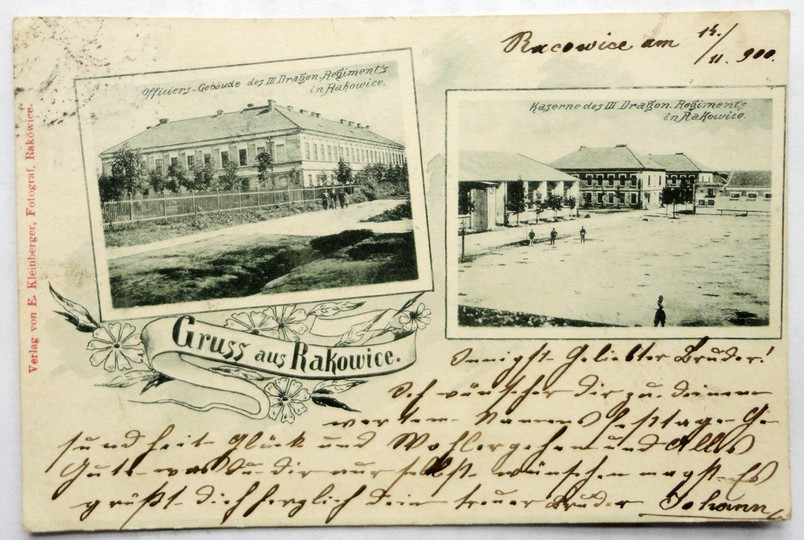 Racowice am 14./11. 900.
Officiers-Gebäude des III Dragon.-Regiment's
in Rakowice.
Kaserne des III. Dragon. Regiments
in Rakowice.
Verlag von E. Kleinberger, Fotograf, Rakowice.
Gruss aus Rakowice.
Innigst Geliebter Bruder!
Ich wünsche dir zu deinem
werten Namensfesttage Ge-
sundheit Glück und Wohlergehen und Alles
Gute was du dir nur selbst wünschen magst Es
grüßt dich herzlich dein treuer Bruder Johann